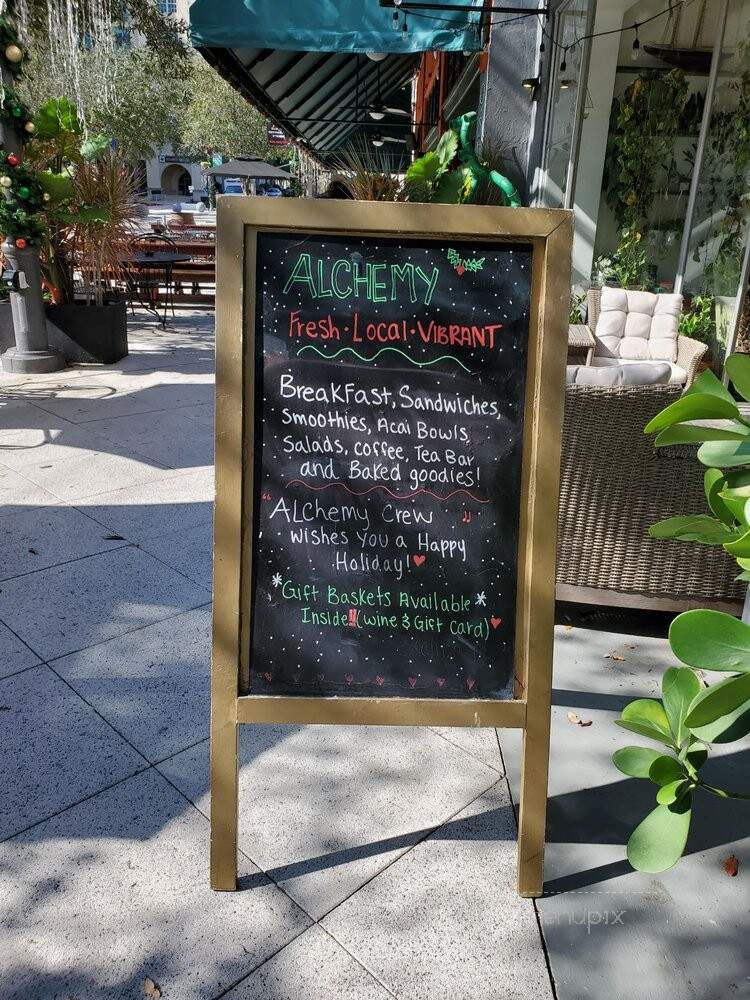 ALCHEMY
Fresh · Local · VIBRANT
BreakFast, Sandwiches,
Smoothies, Acai Bowls
Salads, coffee, Tea Bar
and Baked goodies!
"ALchemy Crew "
wishes you a Happy
Holiday!♥
*Gift Baskets Available*
Inside!! (wine & Gift card)♥
menupix